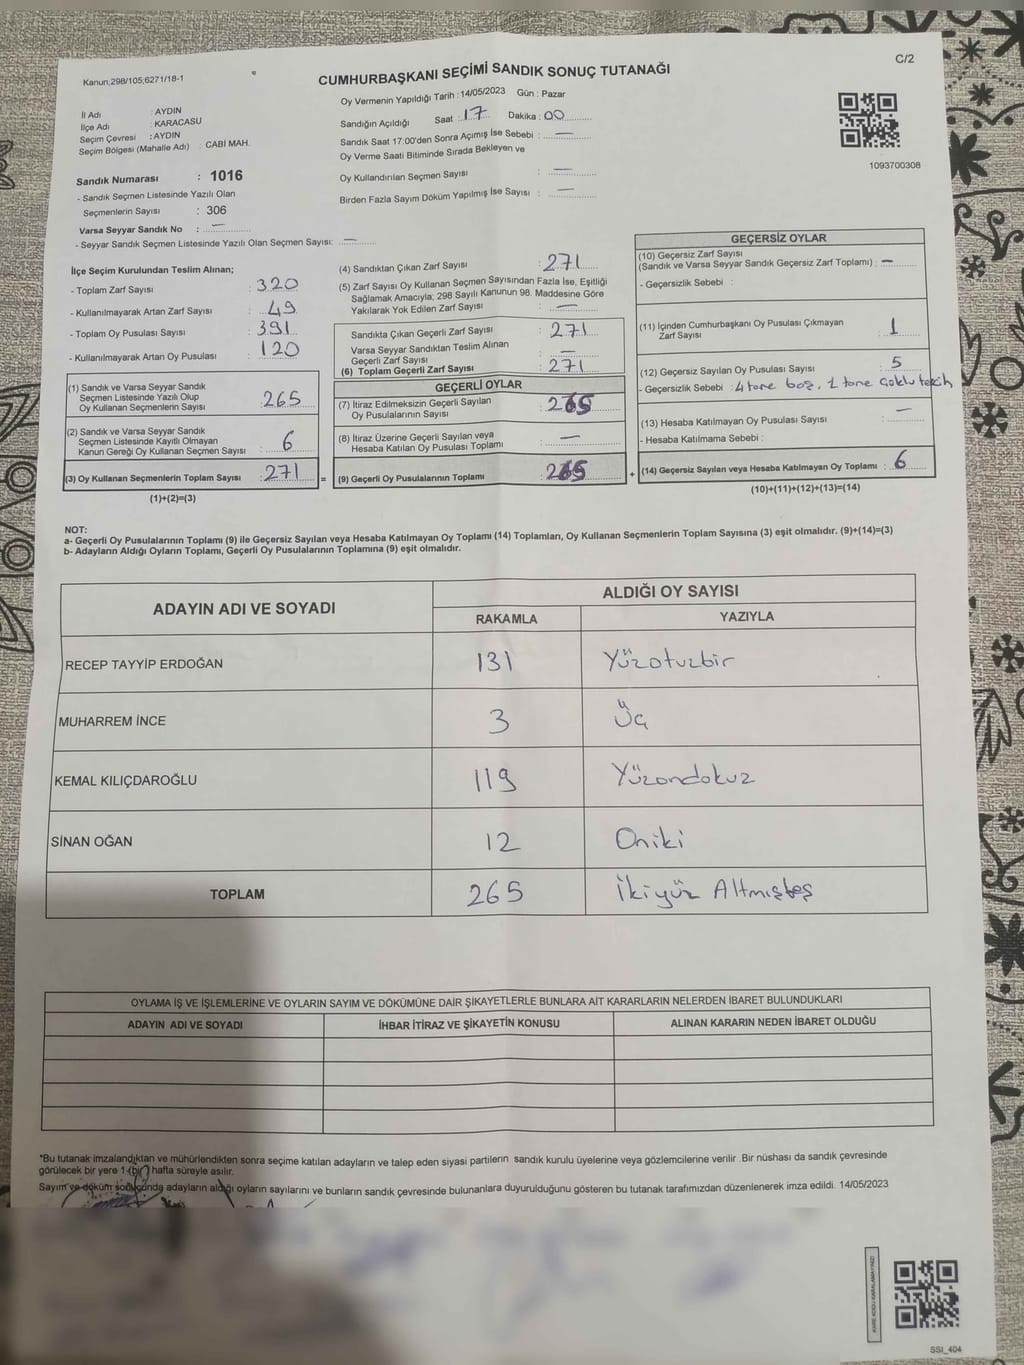 Kanun;298/105;6271/18-1
C/2
CUMHURBAŞKANI SEÇİMİ SANDIK SONUÇ TUTANAĞI
İl Adı : AYDIN
İlçe Adı : KARACASU
Seçim Çevresi : AYDIN
Seçim Bölgesi (Mahalle Adı) : CABİ MAH.
Sandık Numarası : 1016
- Sandık Seçmen Listesinde Yazılı Olan
Seçmenlerin Sayısı : 306
Varsa Seyyar Sandık No : —
- Seyyar Sandık Seçmen Listesinde Yazılı Olan Seçmen Sayısı: —
Oy Vermenin Yapıldığı Tarih : 14/05/2023 Gün : Pazar
Sandığın Açıldığı Saat : 17 Dakika : 00
Sandık Saat 17:00'den Sonra Açımış İse Sebebi : —
Oy Verme Saati Bitiminde Sırada Bekleyen ve
Oy Kullandırılan Seçmen Sayısı : —
Birden Fazla Sayım Döküm Yapılmış İse Sayısı : —
1093700308
İlçe Seçim Kurulundan Teslim Alınan;
- Toplam Zarf Sayısı : 320
- Kullanılmayarak Artan Zarf Sayısı : 49
- Toplam Oy Pusulası Sayısı : 391
- Kullanılmayarak Artan Oy Pusulası : 120
(1) Sandık ve Varsa Seyyar Sandık
Seçmen Listesinde Yazılı Olup
Oy Kullanan Seçmenlerin Sayısı : 265
(2) Sandık ve Varsa Seyyar Sandık
Seçmen Listesinde Kayıtlı Olmayan
Kanun Gereği Oy Kullanan Seçmen Sayısı : 6
(3) Oy Kullanan Seçmenlerin Toplam Sayısı : 271 =
(1)+(2)=(3)
(4) Sandıktan Çıkan Zarf Sayısı : 271
(5) Zarf Sayısı Oy Kullanan Seçmen Sayısından Fazla İse, Eşitliği
Sağlamak Amacıyla; 298 Sayılı Kanunun 98. Maddesine Göre
Yakılarak Yok Edilen Zarf Sayısı : —
Sandıkta Çıkan Geçerli Zarf Sayısı : 271
Varsa Seyyar Sandıktan Teslim Alınan
Geçerli Zarf Sayısı : —
(6) Toplam Geçerli Zarf Sayısı : 271
GEÇERLİ OYLAR
(7) İtiraz Edilmeksizin Geçerli Sayılan
Oy Pusulalarının Sayısı : 265
(8) İtiraz Üzerine Geçerli Sayılan veya
Hesaba Katılan Oy Pusulası Toplamı : —
(9) Geçerli Oy Pusulalarının Toplamı : 265 +
GEÇERSİZ OYLAR
(10) Geçersiz Zarf Sayısı
(Sandık ve Varsa Seyyar Sandık Geçersiz Zarf Toplamı) : —
- Geçersizlik Sebebi :
(11) İçinden Cumhurbaşkanı Oy Pusulası Çıkmayan
Zarf Sayısı : 1
(12) Geçersiz Sayılan Oy Pusulası Sayısı : 5
- Geçersizlik Sebebi : 4 tane boş, 1 tane çoklu tercih
(13) Hesaba Katılmayan Oy Pusulası Sayısı : —
- Hesaba Katılmama Sebebi :
(14) Geçersiz Sayılan veya Hesaba Katılmayan Oy Toplamı : 6
(10)+(11)+(12)+(13)=(14)
NOT:
a- Geçerli Oy Pusulalarının Toplamı (9) ile Geçersiz Sayılan veya Hesaba Katılmayan Oy Toplamı (14) Toplamları, Oy Kullanan Seçmenlerin Toplam Sayısına (3) eşit olmalıdır. (9)+(14)=(3)
b- Adayların Aldığı Oyların Toplamı, Geçerli Oy Pusulalarının Toplamına (9) eşit olmalıdır.
ADAYIN ADI VE SOYADI
ALDIĞI OY SAYISI
RAKAMLA YAZIYLA
RECEP TAYYİP ERDOĞAN 131 Yüzotuzbir
MUHARREM İNCE 3 Üç
KEMAL KILIÇDAROĞLU 119 Yüzondokuz
SİNAN OĞAN 12 Oniki
TOPLAM 265 İkiyüz Altmışbeş
OYLAMA İŞ VE İŞLEMLERİNE VE OYLARIN SAYIM VE DÖKÜMÜNE DAİR ŞİKAYETLERLE BUNLARA AİT KARARLARIN NELERDEN İBARET BULUNDUKLARI
ADAYIN ADI VE SOYADI İHBAR İTİRAZ VE ŞİKAYETİN KONUSU ALINAN KARARIN NEDEN İBARET OLDUĞU
*Bu tutanak imzalandıktan ve mühürlendikten sonra seçime katılan adayların ve talep eden siyasi partilerin sandık kurulu üyelerine veya gözlemcilerine verilir .Bir nüshası da sandık çevresinde
görülecek bir yere 1 (bir) hafta süreyle asılır.
Sayım ve döküm sonucunda adayların aldığı oyların sayılarını ve bunların sandık çevresinde bulunanlara duyurulduğunu gösteren bu tutanak tarafımızdan düzenlenerek imza edildi. 14/05/2023
KARE KODU KARALAMAYINIZ!
SSI_404